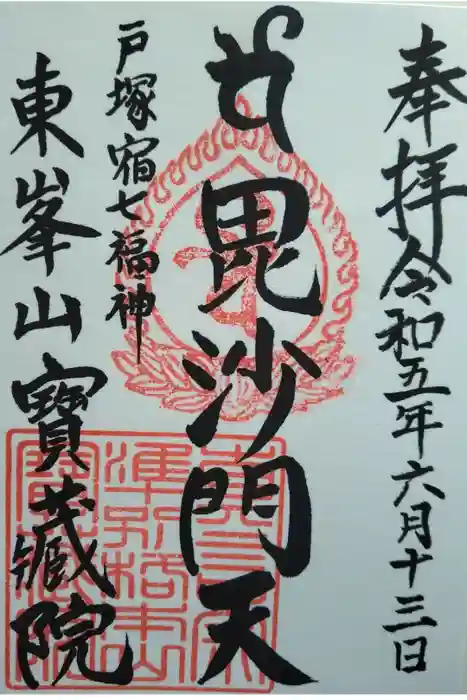 奉拝 令和五年六月十三日
毘沙門天
戸塚宿七福神
東峯山寶蔵院